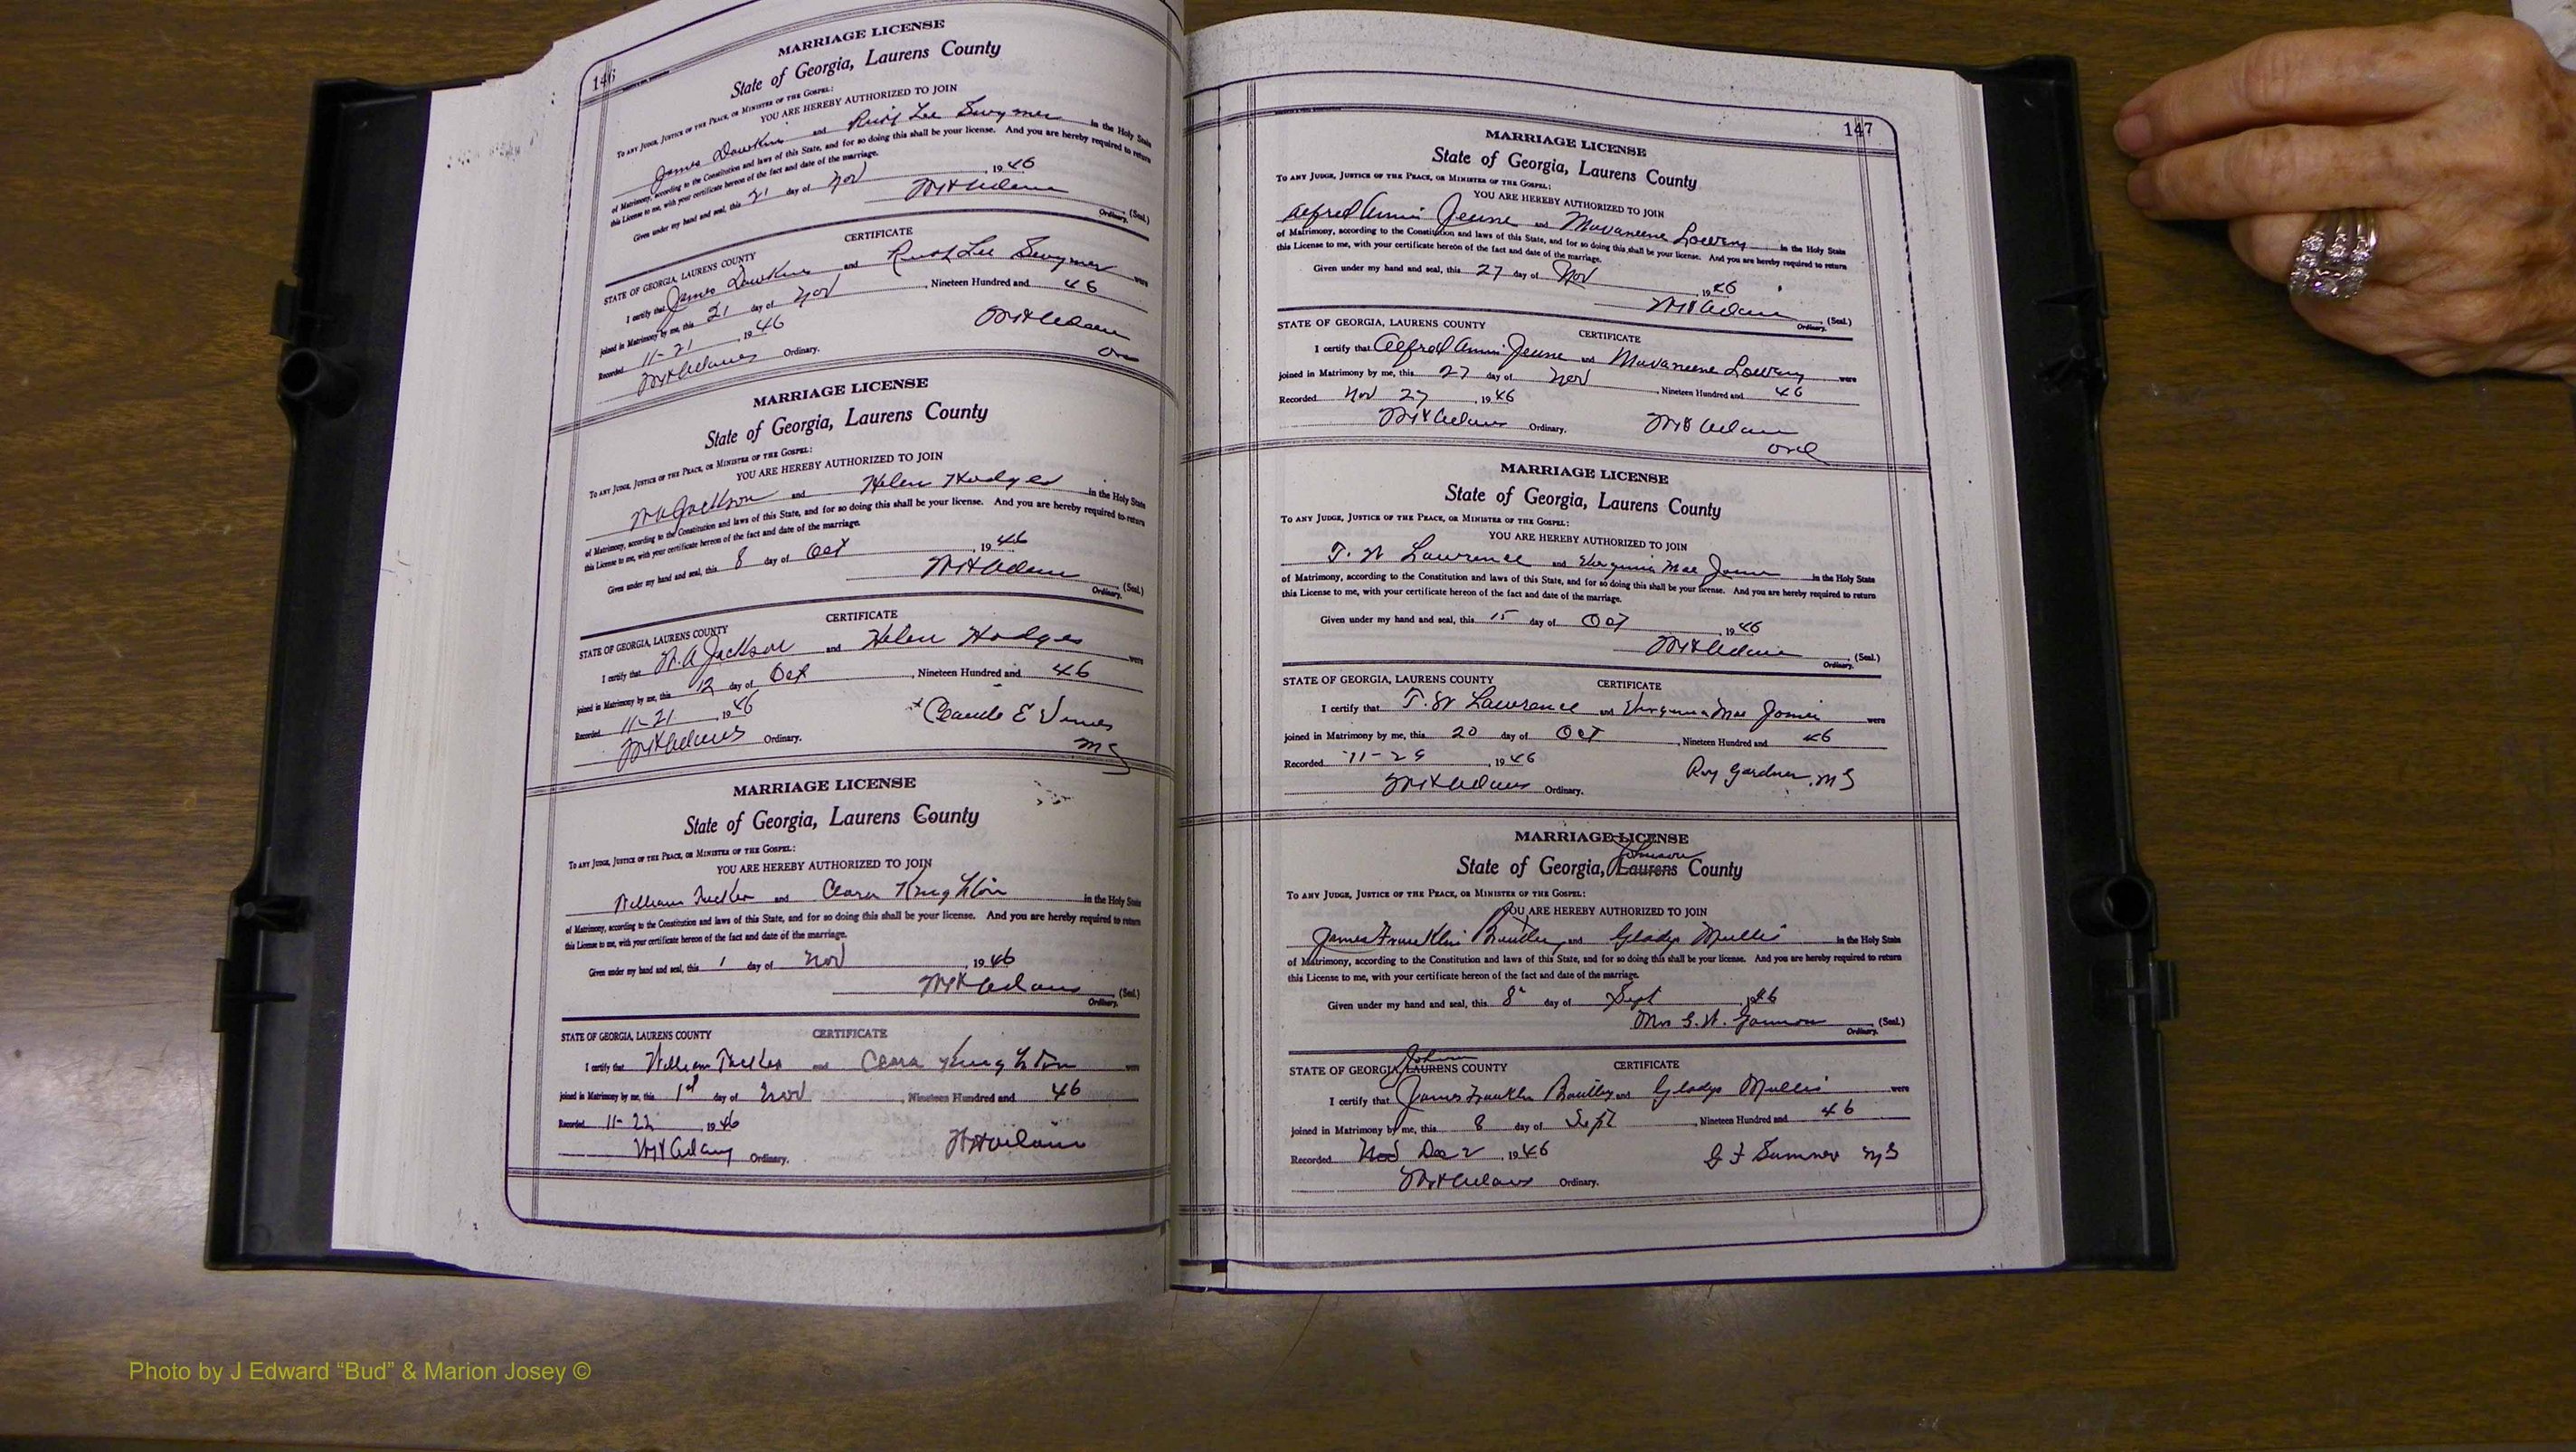 146
MARRIAGE LICENSE
State of Georgia, Laurens County
To any Judge, Justice of the Peace, or Minister of the Gospel:
YOU ARE HEREBY AUTHORIZED TO JOIN
James Dawkins and Lee in the Holy State
of Matrimony, according to the Constitution and laws of this State, and for so doing this shall be your license. And you are hereby required to return
this License to me, with your certificate hereon of the fact and date of the marriage.
Given under my hand and seal, this 21 day of Nov, 1946
(Seal.)
Ordinary.
CERTIFICATE
STATE OF GEORGIA, LAURENS COUNTY
I certify that James Dawkins and Lee were
joined in Matrimony by me, this 21 day of Nov, Nineteen Hundred and 46
Recorded 11-21, 1946
Adams Ordinary.
MARRIAGE LICENSE
State of Georgia, Laurens County
To any Judge, Justice of the Peace, or Minister of the Gospel:
YOU ARE HEREBY AUTHORIZED TO JOIN
Jackson and Helen Hodges in the Holy State
of Matrimony, according to the Constitution and laws of this State, and for so doing this shall be your license. And you are hereby required to return
this License to me, with your certificate hereon of the fact and date of the marriage.
Given under my hand and seal, this 8 day of Oct, 1946
(Seal.)
Ordinary.
CERTIFICATE
STATE OF GEORGIA, LAURENS COUNTY
I certify that W. A Jackson and Helen Hodges were
joined in Matrimony by me, this 12 day of Oct, Nineteen Hundred and 46
Recorded 11-21, 1946
Claude E Vines
Adams Ordinary. MG
MARRIAGE LICENSE
State of Georgia, Laurens County
To any Judge, Justice of the Peace, or Minister of the Gospel:
YOU ARE HEREBY AUTHORIZED TO JOIN
William Tucker and Clara in the Holy State
of Matrimony, according to the Constitution and laws of this State, and for so doing this shall be your license. And you are hereby required to return
this License to me, with your certificate hereon of the fact and date of the marriage.
Given under my hand and seal, this 1 day of Nov, 1946
Adams (Seal.)
Ordinary.
CERTIFICATE
STATE OF GEORGIA, LAURENS COUNTY
I certify that William Tucker and Clara were
joined in Matrimony by me, this 1st day of Nov, Nineteen Hundred and 46
Recorded 11-22, 1946
Ordinary.
147
MARRIAGE LICENSE
State of Georgia, Laurens County
To any Judge, Justice of the Peace, or Minister of the Gospel:
YOU ARE HEREBY AUTHORIZED TO JOIN
Alfred and Lowery in the Holy State
of Matrimony, according to the Constitution and laws of this State, and for so doing this shall be your license. And you are hereby required to return
this License to me, with your certificate hereon of the fact and date of the marriage.
Given under my hand and seal, this 27 day of Nov, 1946
(Seal.)
Ordinary.
CERTIFICATE
STATE OF GEORGIA, LAURENS COUNTY
I certify that Alfred and Lowery were
joined in Matrimony by me, this 27 day of Nov, Nineteen Hundred and 46
Recorded Nov 27, 1946
Adams Ordinary.
Ord
MARRIAGE LICENSE
State of Georgia, Laurens County
To any Judge, Justice of the Peace, or Minister of the Gospel:
YOU ARE HEREBY AUTHORIZED TO JOIN
T. W Lawrence and Virginia Mae in the Holy State
of Matrimony, according to the Constitution and laws of this State, and for so doing this shall be your license. And you are hereby required to return
this License to me, with your certificate hereon of the fact and date of the marriage.
Given under my hand and seal, this 15 day of Oct, 1946
(Seal.)
Ordinary.
CERTIFICATE
STATE OF GEORGIA, LAURENS COUNTY
I certify that T. W Lawrence and Virginia Mae were
joined in Matrimony by me, this 20 day of Oct, Nineteen Hundred and 46
Recorded 11-29, 1946
Roy Gardner, MG
Adams Ordinary.
MARRIAGE LICENSE
Johnson
State of Georgia, Laurens County
To any Judge, Justice of the Peace, or Minister of the Gospel:
YOU ARE HEREBY AUTHORIZED TO JOIN
James Franklin and Gladys Mullis in the Holy State
of Matrimony, according to the Constitution and laws of this State, and for so doing this shall be your license. And you are hereby required to return
this License to me, with your certificate hereon of the fact and date of the marriage.
Given under my hand and seal, this 8 day of Sept, 1946
Mrs G. W. (Seal.)
Ordinary.
CERTIFICATE
STATE OF GEORGIA, LAURENS COUNTY
I certify that James Franklin and Gladys Mullis were
joined in Matrimony by me, this 8 day of Sept, Nineteen Hundred and 46
Recorded Nov Dec 2, 1946
Sumner MG
Adams Ordinary.
Photo by J Edward “Bud” & Marion Josey ©